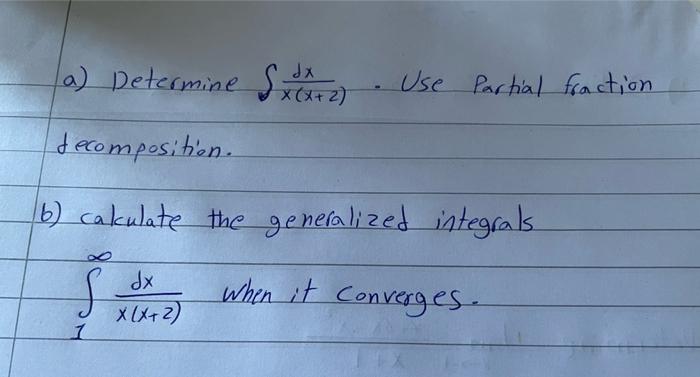 a) Determine ∫ dx / x(x+2) . Use Partial fraction
decomposition.
b) calculate the generalized integrals
∫₁^∞ dx / x(x+2) when it converges.